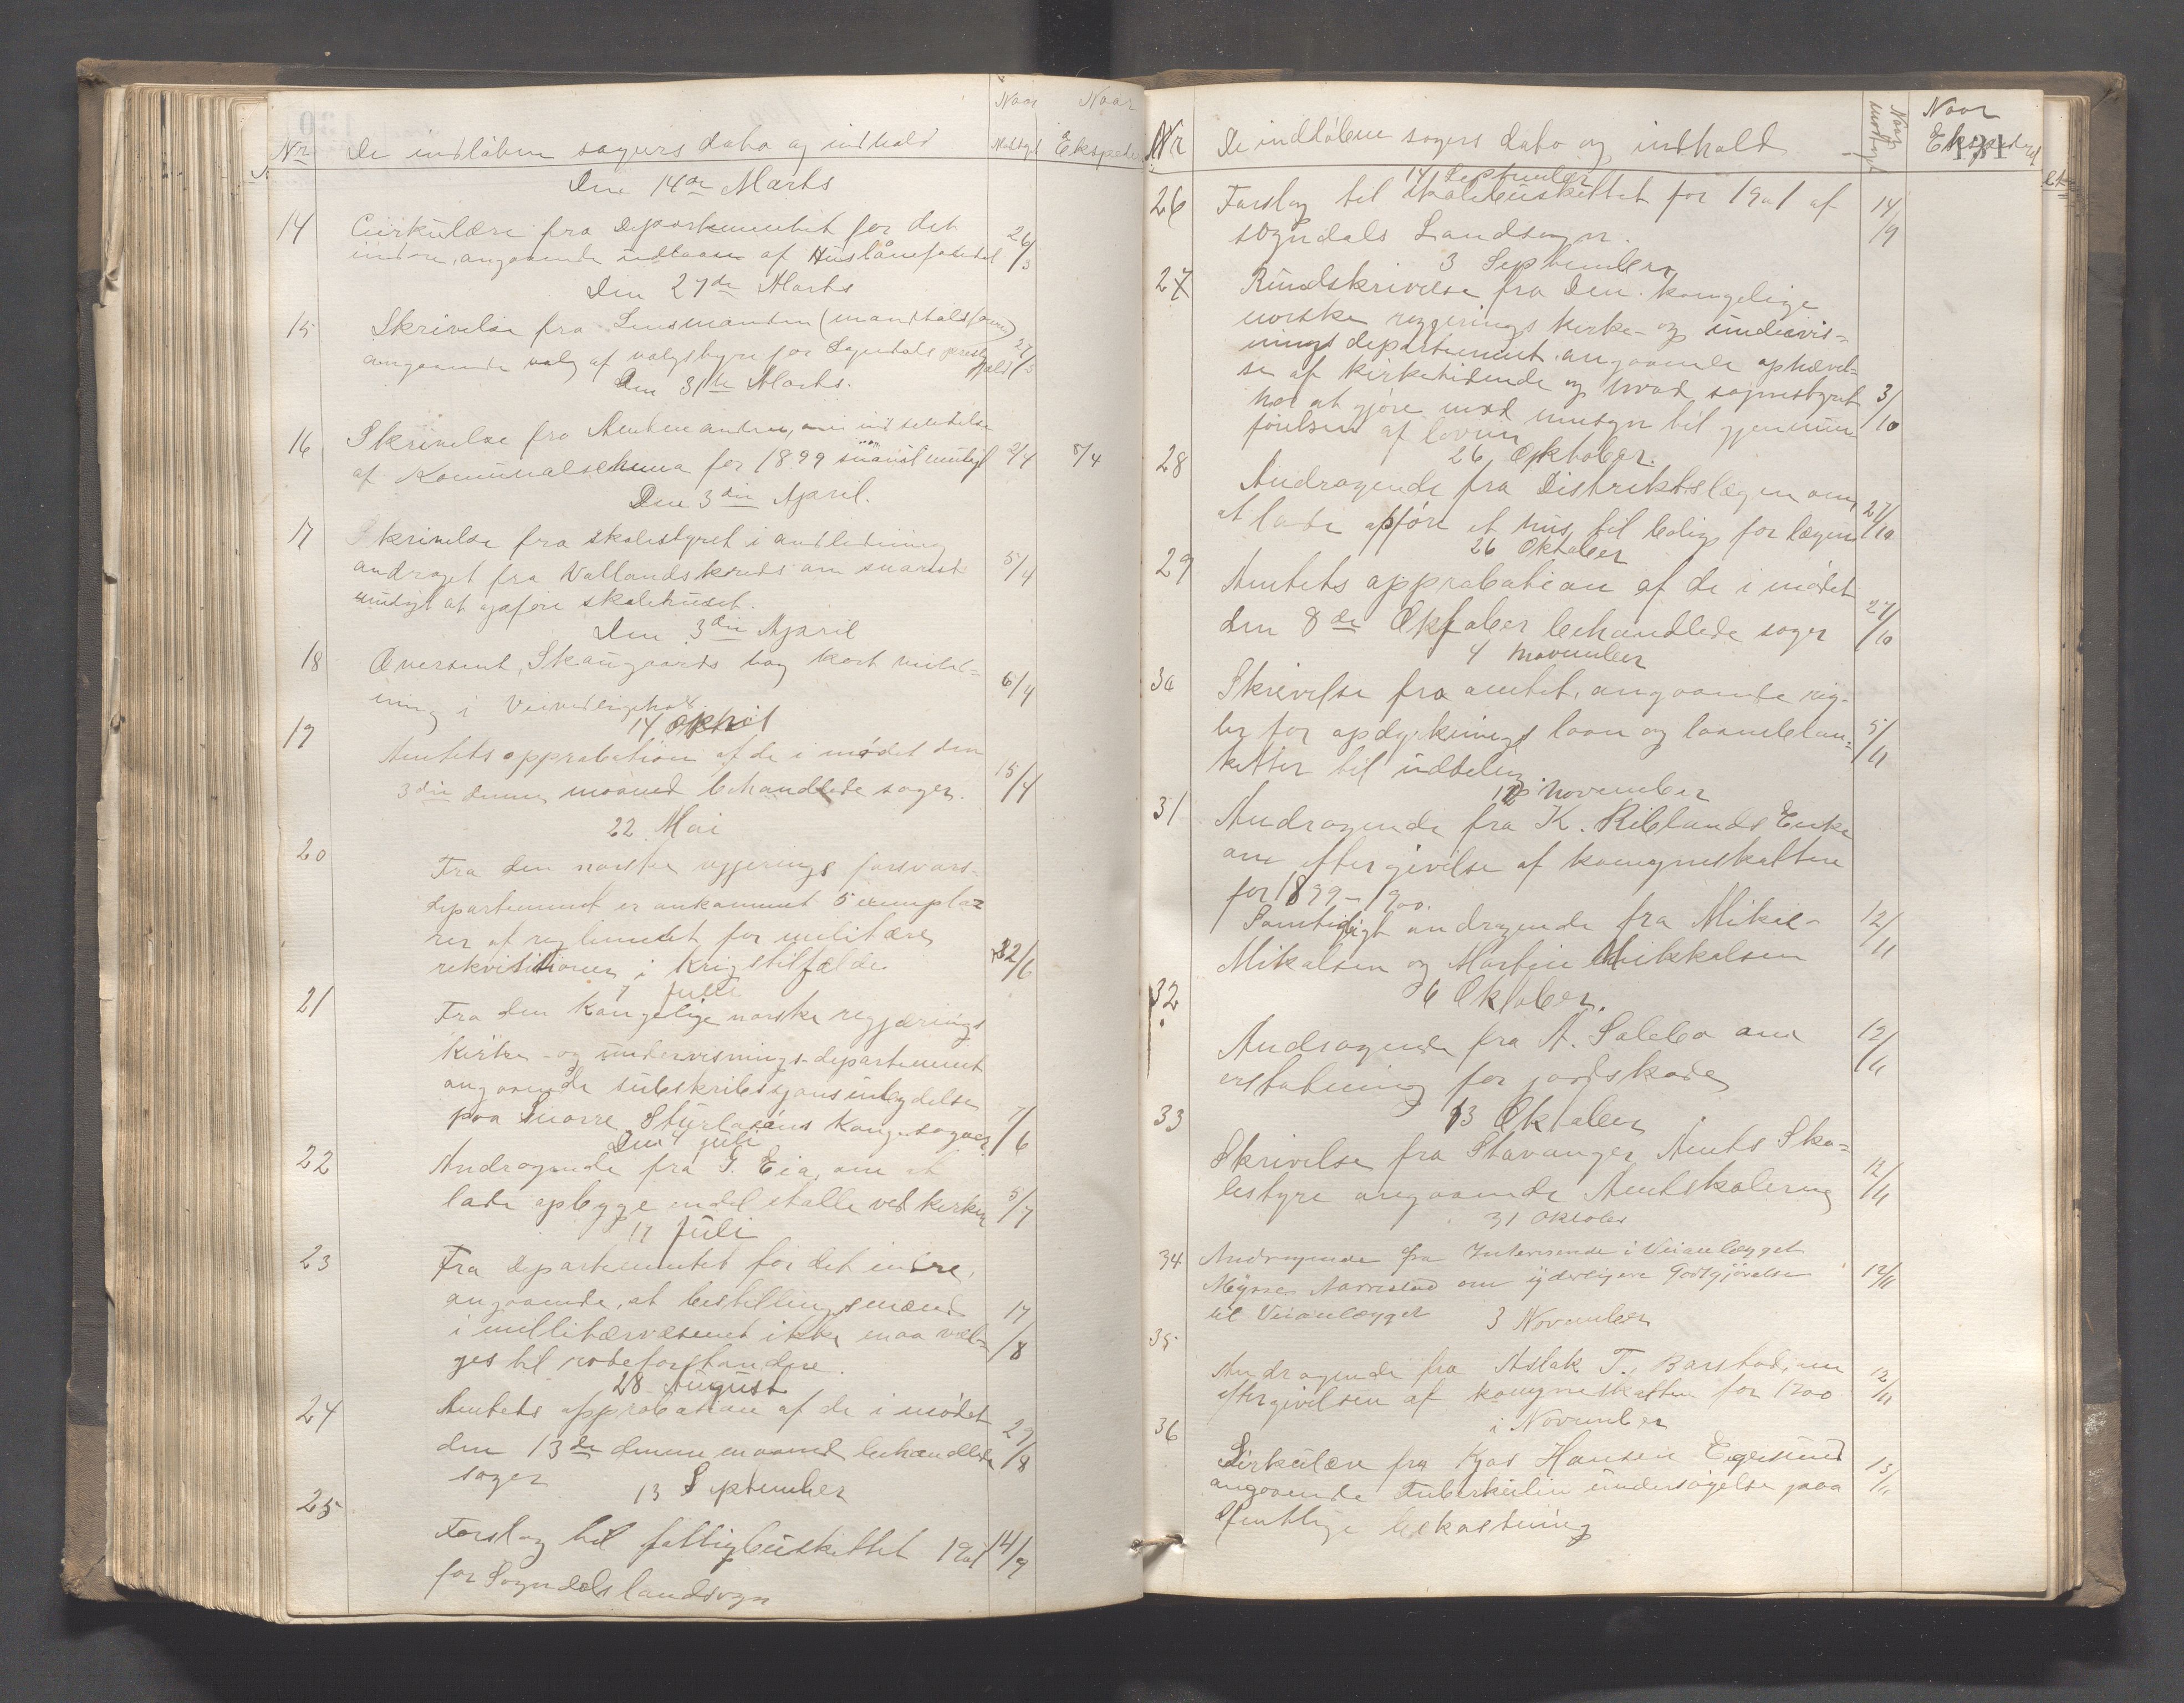 Naar Naar
Nr De indløbne sagers dato og indhold Modtaget Ekspede
Den 14de Marts
14 Cirkulære fra Departementet for det 26/3
indre, angaaende udlaan af Huslånefondet
Den 27de Marts
15 Skrivelse fra Lensmanden (mandtalsfører) 27/3
angaaende valg af valgstyre for Sogndals prestegjeld
Den 31te Marts.
16 Skrivelse fra Amtmanden, om indsendelse
af Komunalskema for 1899 snarest muligt 2/4 8/4
Den 3die April.
17 Skrivelse fra skolestyret i anledning
andraget fra Vatlands kreds om snarest 5/4
muligt at opføre skolehuset.
Den 3die April
18 Oversent, Skaugaards bog kort veiled=
ning i Veivedligehold 6/4
14 April
19 Amtets approbation af de i mødet den
3die denne maaned behandlede sager. 15/4
22 Mai
20 Fra den norske regjerings forsvars-
departement er ankommet 5 exempla=
rer af reglementet for militære
rekvisitioner i Krigstilfælde 22/6
7 Juli
21 Fra den Kongelige norske regjærings
Kirke- og undervisnings-departement
angaaende subskribtsjonsindbydelse
paa Snorre Sturlasøns Kongesagaer 7/6
Den 4 juli
22 Andragende fra T. Eia om at
lade opbygge endel stalle ved kirken 5/7
17 Juli
23 Fra Departementet for det indre,
angaaende, at bestillingsmænd 17/8
i millitærvæsenet ikke maa væl=
ges til rodeforstandere.
28 August
24 Amtets approbation af de i mødet
den 13de denne maaned behandlede 29/8
sager
13 September
25 Forslag til fattigbudskettet 1901 14/9
for Sogndals landsogn
Naar modtaget Naar
Nr De indløbne sagers dato og indhold Ekspederet
131
14 September
26 Forslag til skolebudskettet for 1901 af 14/9
sogndals Landsogn.
3 September
27 Rundskrivelse fra Den kongelige
norske regjerings kirke- og undervis=
nings departement angaaende ophævel=
se af kirketidende og hvad sognestyret 3/10
har at gjøre med hensyn til gjennem
førelsen af loven
26 Oktober.
28 Andragende fra Distriktslægen om
at lade opføre et hus til bolig for lægen 27/10
26 Oktober
29 Amtets approbation af de i mødet
den 8de Oktober behandlede sager 27/10
4 November
30 Skrivelse fra amtet, angaaende reg-
ler for opdyrknings laan og laaneblan= 5/11
ketter til uddeling.
12 November
31 Andragende fra K. Riblands Enke
om eftergivelse af komuneskatten
for 1899-1900.
Samtidigt andragende fra Mikal 12/11
Mikalsen og Martin Mikkalsen
6 Oktober.
32 Andragende fra A. Salebo om 12/11
erstatning for jordskade
13 Oktober
33 Skrivelse fra Stavanger Amts Sko=
lestyre angaaende Amtskolerne 12/11
31 Oktober
34 Andragende fra Interesende i Veianlægget
Mysse Aarrestad om yderligere Godtgjørelse 12/11
til Veianlægget
3 November
35 Andragende fra Aslak T. Barstad, om
eftergivelsen af komuneskatten for 1900 12/11
1 November
36 Sirkulære fra Kjøs Hansen Egersund
angaaende Tuberkulin undersøgelse paa 13/11
ofentlige bekostning